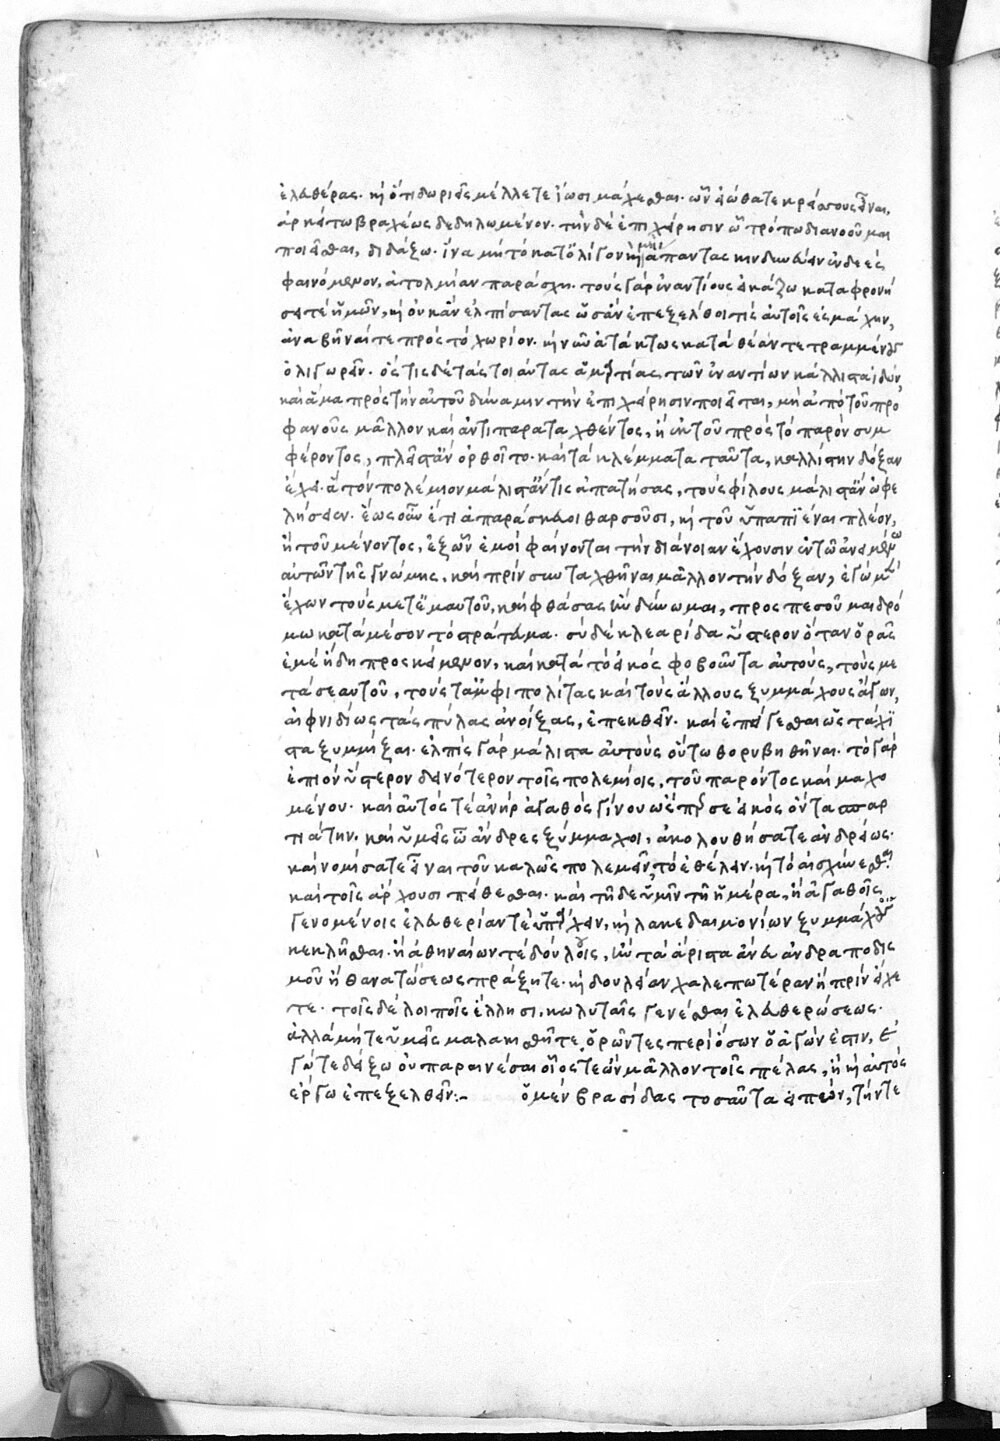 ἐλευθέρας. καὶ ὅτι δωριεῖς μέλλετε ἴωσι μάχεσθαι. ὧν εἰώθατε κρείσσους εἶναι,
ἀρκείτω βραχέως δεδηλωμένον. τὴν δὲ ἐπιχείρησιν ᾧ τρόπω διανοοῦμαι
ποιεῖσθαι, διδάξω. ἵνα μὴ τὸ κατ' ὀλίγον καὶ μὴ ἅπαντας κινδυνεύειν ἐνδεὲς
φαινόμενον, ἀτολμίαν παράσχη. τοὺς γὰρ ἐναντίους εἰκάζω καταφρονή
σει τε ἡμῶν, καὶ οὐκ ἂν ἐλπίσαντας ὡς ἂν ἐπεξέλθοι τίς αὐτοῖς ἐς μάχην,
ἀναβῆναί τε πρὸς τὸ χωρίον. καὶ νῦν ἀτάκτως κατὰ θέαν τετραμμένους
ὀλιγωρεῖν. ὅστις δὲ τὰς τοιαύτας ἁμαρτίας τῶν ἐναντίων κάλλιστα ἰδών,
καὶ ἅμα πρὸς τὴν αὑτοῦ δύναμιν τὴν ἐπιχείρησιν ποιεῖται, μὴ ἀπὸ τοῦ προ
φανοῦς μᾶλλον καὶ ἀντιπαραταχθέντος, ἢ ἐκ τοῦ πρὸς τὸ παρὸν συμ
φέροντος, πλεῖστ' ἂν ὀρθοῖτο. καὶ τὰ κλέμματα ταῦτα, καλλίστην δόξαν
ἔχει. ἃ τὸν πολέμιον μάλιστ' ἄν τις ἀπατήσας, τοὺς φίλους μάλιστ' ἂν ὠφε
λήσειεν. ἕως οὖν ἔτι ἀπαράσκευοι θαρσοῦσι, καὶ τοῦ ὑπαπϊέναι πλέον,
ἢ τοῦ μένοντος, ἐξ ὧν ἐμοὶ φαίνονται τὴν διάνοιαν ἔχουσιν ἐν τῶ ἀνειμένω
αὐτῶν τῆς γνώμης. καὶ πρὶν συνταχθῆναι μᾶλλον τὴν δόξαν, ἐγὼ μὲν
ἔχων τοὺς μετ' ἐμαυτοῦ, καὶ φθάσας ἢν δύνωμαι, προσπεσοῦμαι δρό
μω κατὰ μέσον τὸ στράτευμα. σὺ δὲ κλεαρίδα ὕστερον ὅταν ὁρᾶς
ἐμὲ ἤδη προσκείμενον, καὶ κατὰ τὸ εἰκὸς φοβοῦντα αὐτοὺς, τοὺς με
τὰ σεαυτοῦ, τούς τ' ἀμφιπολίτας καὶ τοὺς ἄλλους ξυμμάχους ἄγων,
αἰφνιδίως τὰς πύλας ἀνοίξας, ἐπεκθεῖν. καὶ ἐπείγεσθαι ὡς τάχϊ
στα ξυμμίξαι. ἐλπὶς γὰρ μάλιστα αὐτοὺς οὕτω θορυβηθῆναι. τὸ γὰρ
ἐπιὸν ὕστερον δεινότερον τοῖς πολεμίοις, τοῦ παρόντος καὶ μαχο
μένου. καὶ αὐτός τε ἀνὴρ ἀγαθὸς γίνου ὥσπερ σε εἰκὸς ὄντα σπαρ
τιάτην. καὶ ὑμεῖς ὦ ἄνδρες ξύμμαχοι, ἀκολουθήσατε ἀνδρείως.
καὶ νομίσατε εἶναι τοῦ καλῶς πολεμεῖν, τὸ ἐθέλειν. καὶ τὸ αἰσχύνεσθαι
καὶ τοῖς ἄρχουσι πείθεσθαι. καὶ τῆδε ὑμῖν τῆ ἡμέρα, ἢ ἀγαθοῖς
γενομένοις ἐλευθερίαν τε ὑπάρχειν, καὶ λακεδαιμονίων ξυμμάχοις
κεκλῆσθαι. ἢ ἀθηναίων τε δούλοις, ἢν τὰ ἄριστα ἄνευ ἀνδραποδισ
μοῦ ἢ θανατώσεως πράξητε. καὶ δουλείαν χαλεπωτέραν ἢ πρὶν εἴχε
τε. τοῖς δὲ λοιποῖς ἕλλησι, κωλυταῖς γενέσθαι ἐλευθερώσεως.
ἀλλὰ μήτε ὑμεῖς μαλακισθῆτε, ὁρῶντες περὶ ὅσων ὁ ἀγών ἐστιν, ἐ
γώ τε δείξω οὐ παραινέσαι οἷός τε ὢν μᾶλλον τοῖς πέλας, ἢ καὶ αὐτὸς
ἔργω ἐπεξελθεῖν:- ὁ μὲν βρασίδας τοσαῦτα εἰπὼν, τήν τε